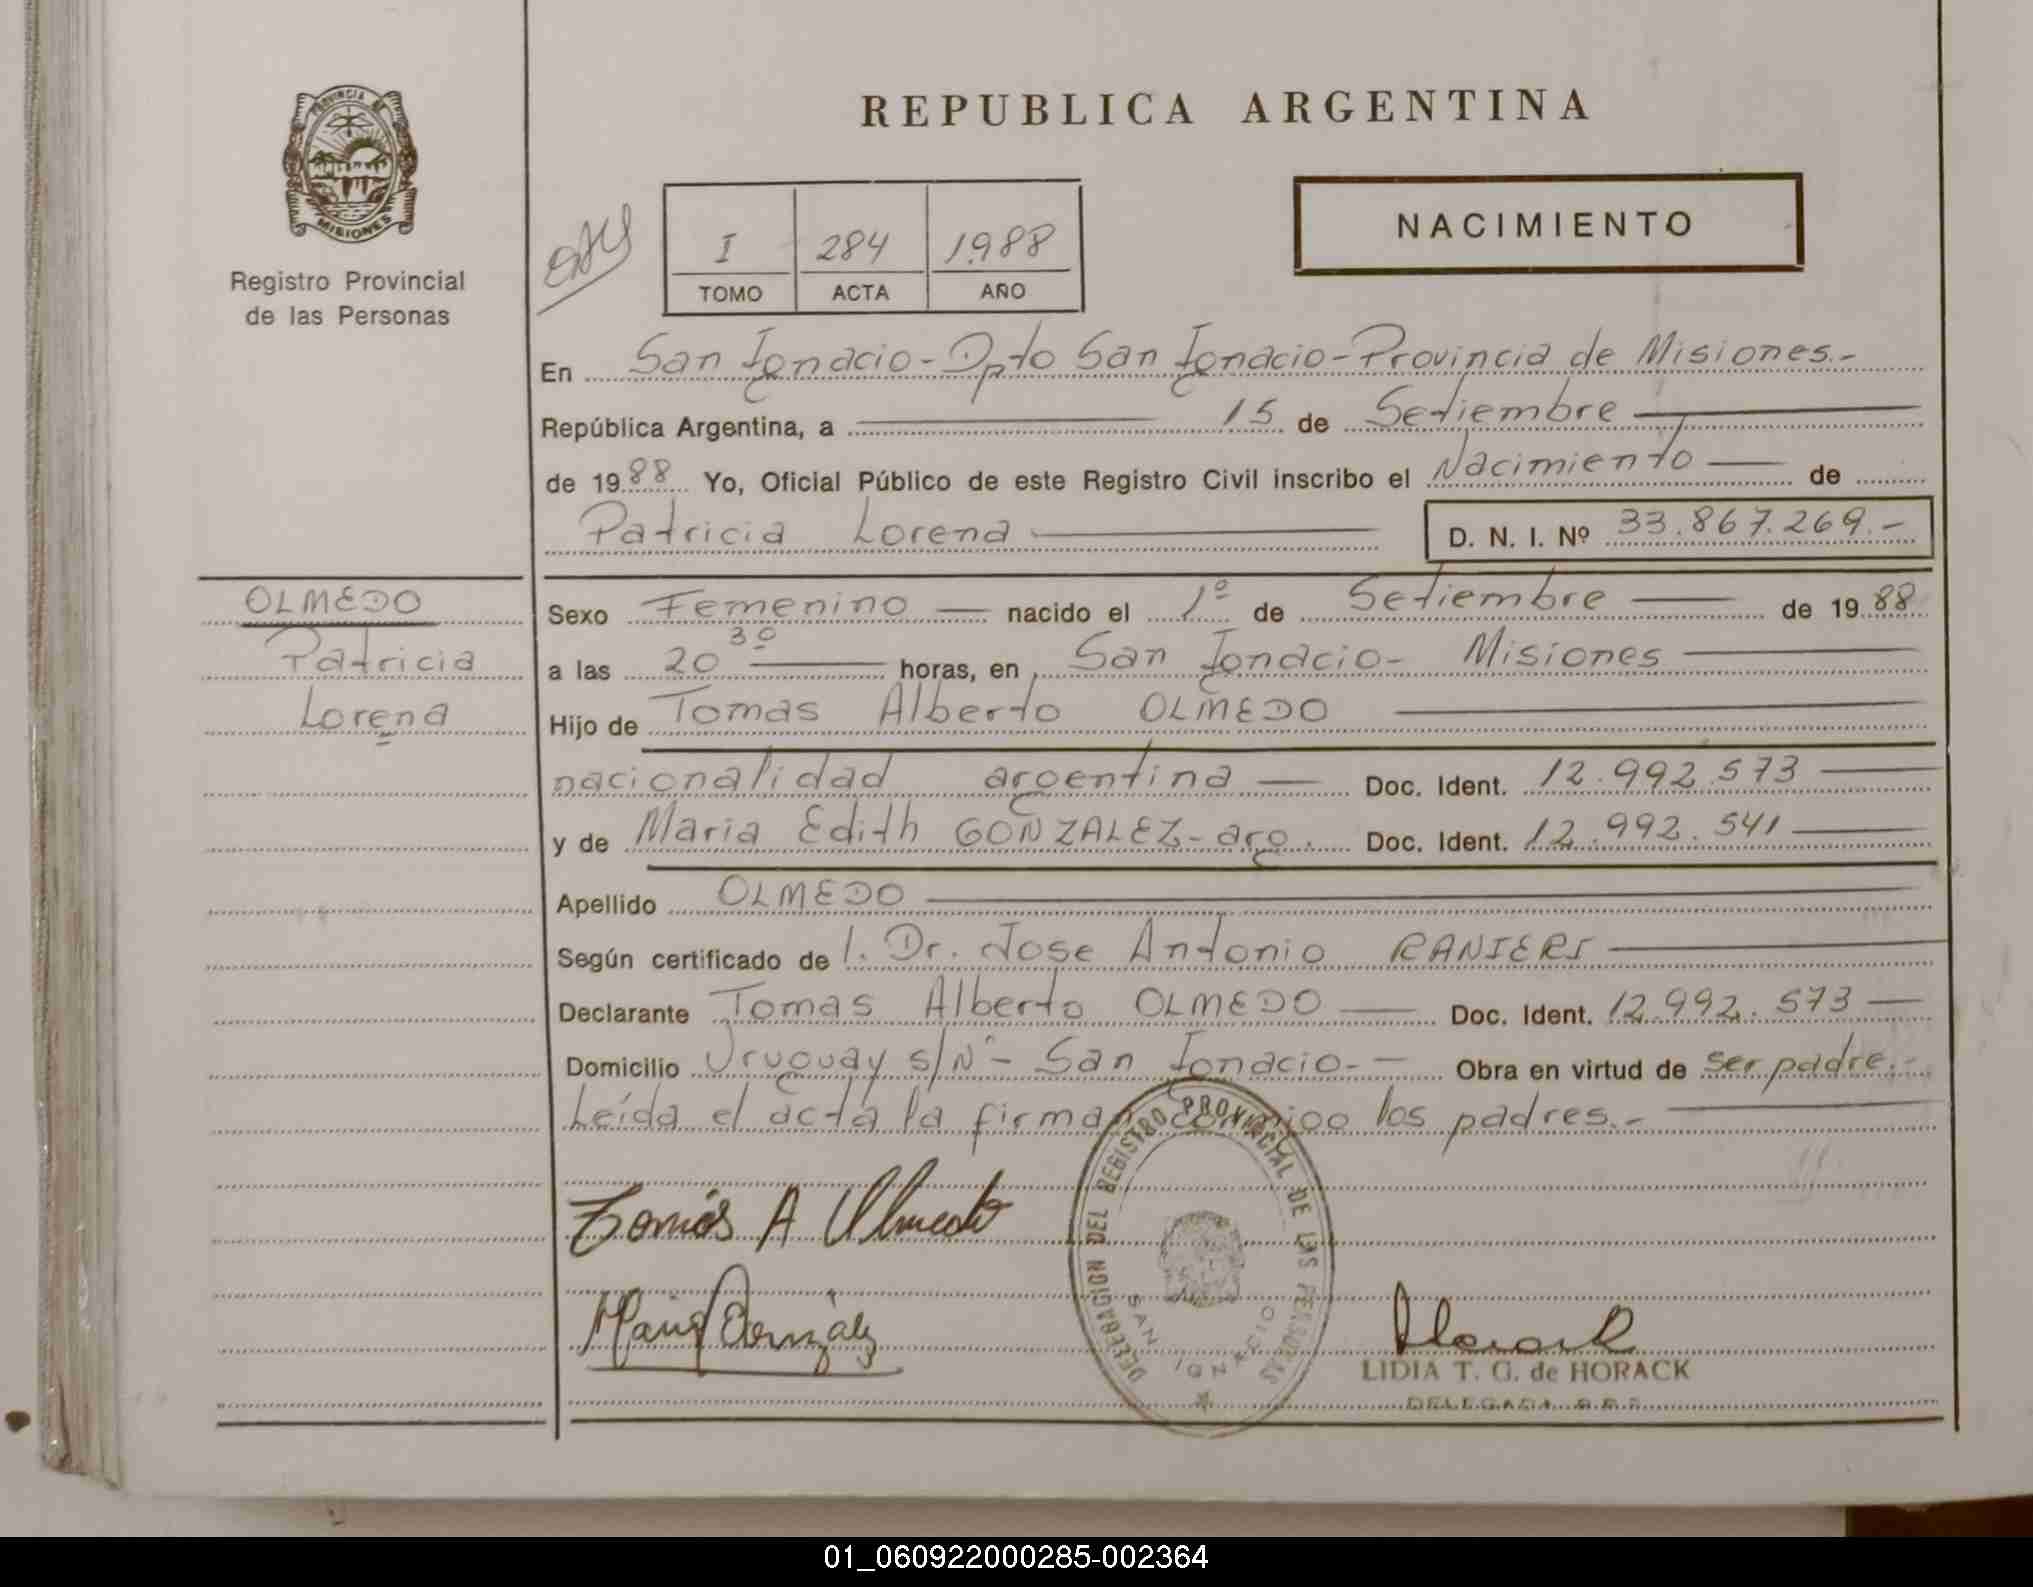 REPUBLICA ARGENTINA
PROVINCIA DE
MISIONES
Registro Provincial
de las Personas
NACIMIENTO
I 284 1988
TOMO ACTA AÑO
En San Ignacio - Dpto San Ignacio - Provincia de Misiones.-
República Argentina, a 15 de Setiembre
de 1988 Yo, Oficial Público de este Registro Civil inscribo el Nacimiento de
Patricia Lorena D. N. I. Nº 33.867.269.-
OLMEDO
Patricia
Lorena
Sexo Femenino nacido el 1º de Setiembre de 1988
a las 20 30 horas, en San Ignacio - Misiones
Hijo de Tomas Alberto OLMEDO
nacionalidad argentina Doc. Ident. 12.992.573
y de Maria Edith GONZALEZ - arg. Doc. Ident. 12.992.541
Apellido OLMEDO
Según certificado de l. Dr. Jose Antonio RANIERI
Declarante Tomas Alberto OLMEDO Doc. Ident. 12.992.573
Domicilio Uruguay s/Nº - San Ignacio.- Obra en virtud de ser padre.-
Leída el acta la firman conmigo los padres.-
Tomás A Olmedo
María González
DELEGACION DEL REGISTRO PROVINCIAL DE LAS PERSONAS
SAN IGNACIO
LIDIA T. G. de HORACK
DELEGADA
01_060922000285-002364